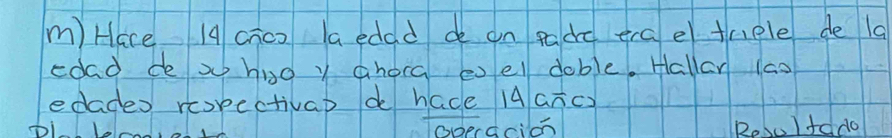 m) Hace 14 años la edad de un padre era el triple de la
edad de su hijo y ahora es el doble. Hallar las
edades respectivas de hace 14 años
Planteamiento Operación Resultado